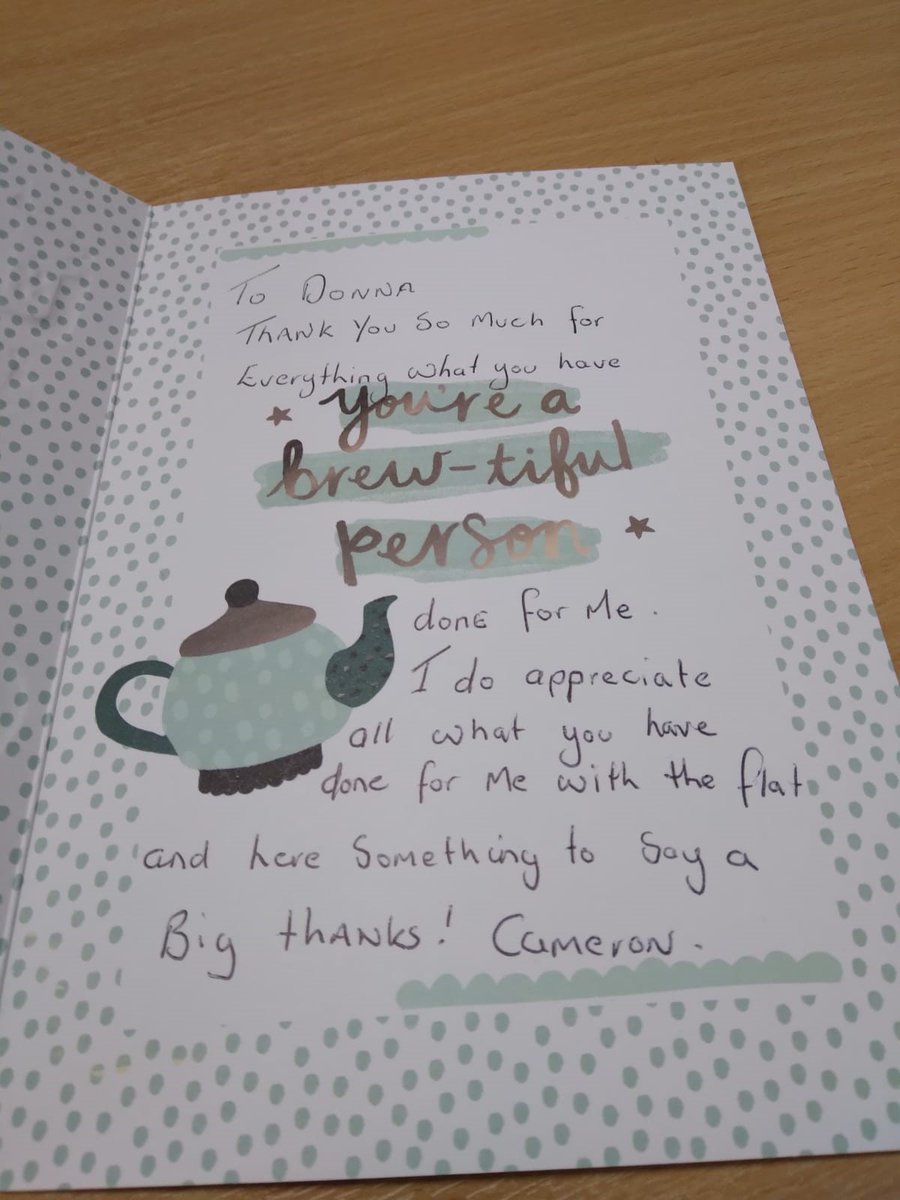 To DONNA
THANK You So Much for
Everything what you have
you're a
brew-tiful
person
done for Me.
I do appreciate
all what you have
done for Me with the flat
and here Something to Say a
Big thANKS! Cameron.